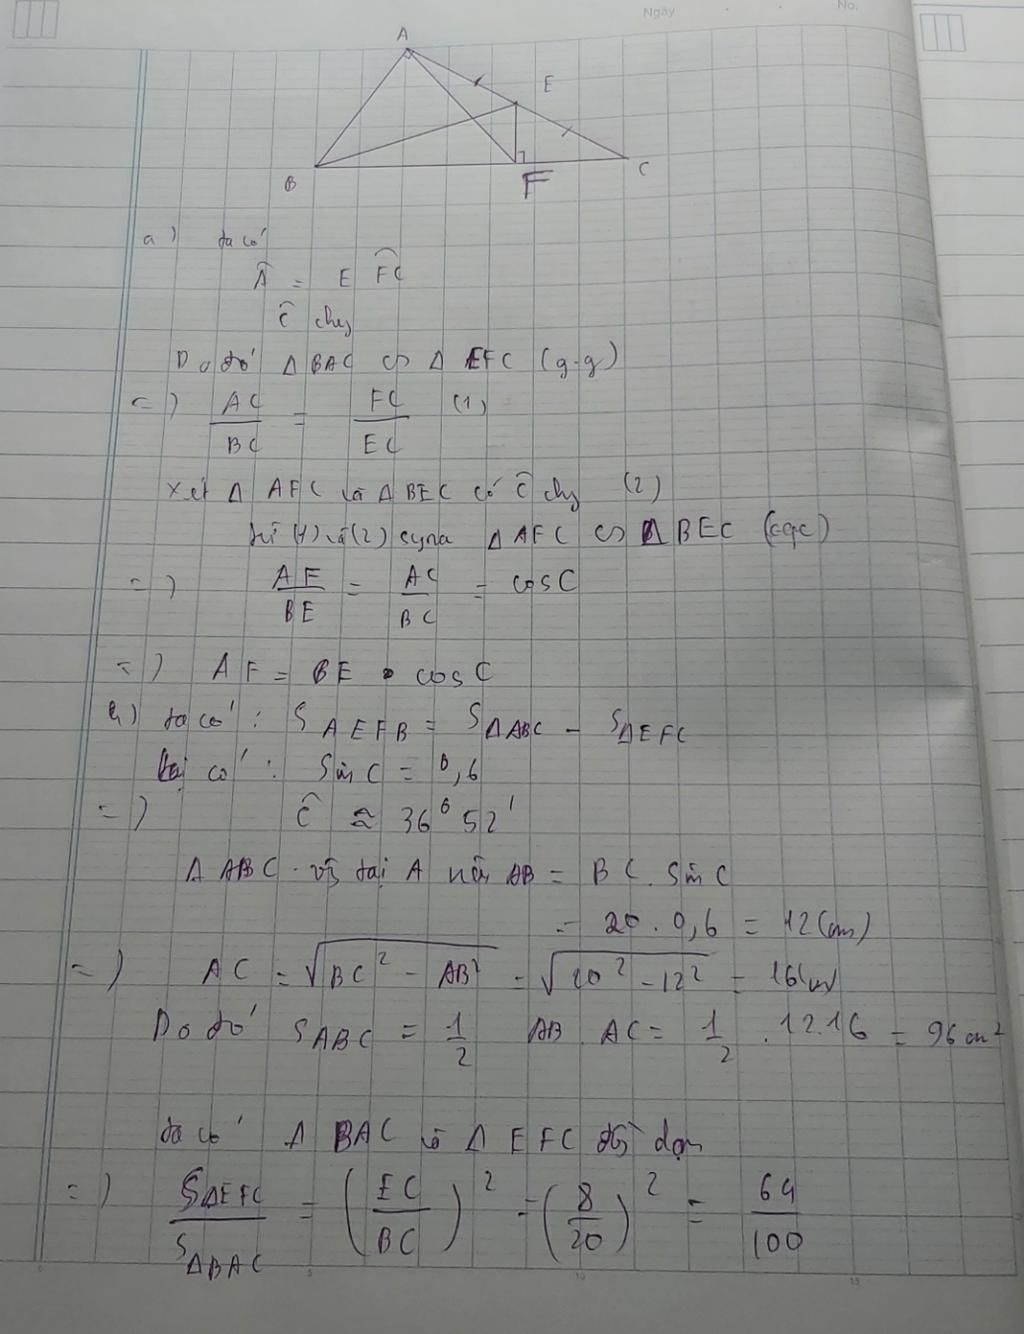 Ngày No.
A
E
B F C
a) ta có
Â = E F̂C
Ĉ chg
Do đó Δ BAC ∽ Δ EFC (g-g)
=) AC/BC = FC/EC (1)
Xét Δ AFC và Δ BEC có Ĉ chg (2)
từ (1) và (2) suy ra Δ AFC ∽ Δ BEC (cgc)
=) AF/BE = AC/BC = cosC
=) AF = BE . cosC
b) ta có : S AEFB = SΔABC - SΔEFC
Lại có : Sin C = 0,6
=) Ĉ ≈ 36° 52'
Δ ABC vg tại A nên AB = BC. Sin C
= 20 . 0,6 = 12 (cm)
=) AC = √BC² - AB² = √20² - 12² = 16 cm
Do đó S ABC = 1/2 AB . AC = 1/2 . 12.16 = 96 cm²
ta có Δ BAC và Δ EFC đg dạng
=) SΔEFC/SΔBAC = (EC/BC)² = (8/20)² = 64/100
5 10 15